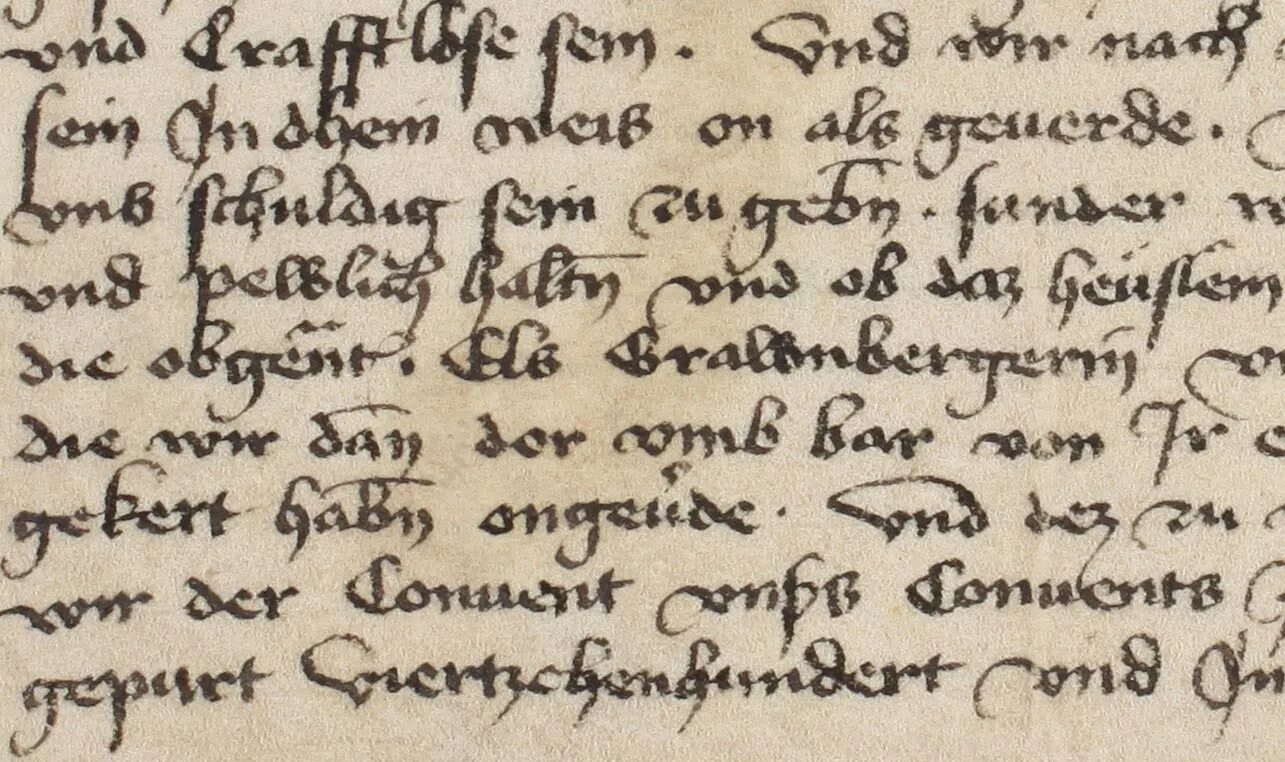 vnd Crafftlose sein . Vnd wir nach
sein Jn dhein weis on als geuerde .
vns schuldig sein zu gebn̄ . sunder
vnd pewlich haltn̄ vnd ob daz heuslein
die obgen̄ant . Els Grawnbergerin
die wir dan̄ dor vmb bar von Jr
gekert habn̄ ongeuͤde . Vnd dez zu
wir der Conuent vnsꝭs Conuents
gepurt Viertzehenhundert vnd Jn